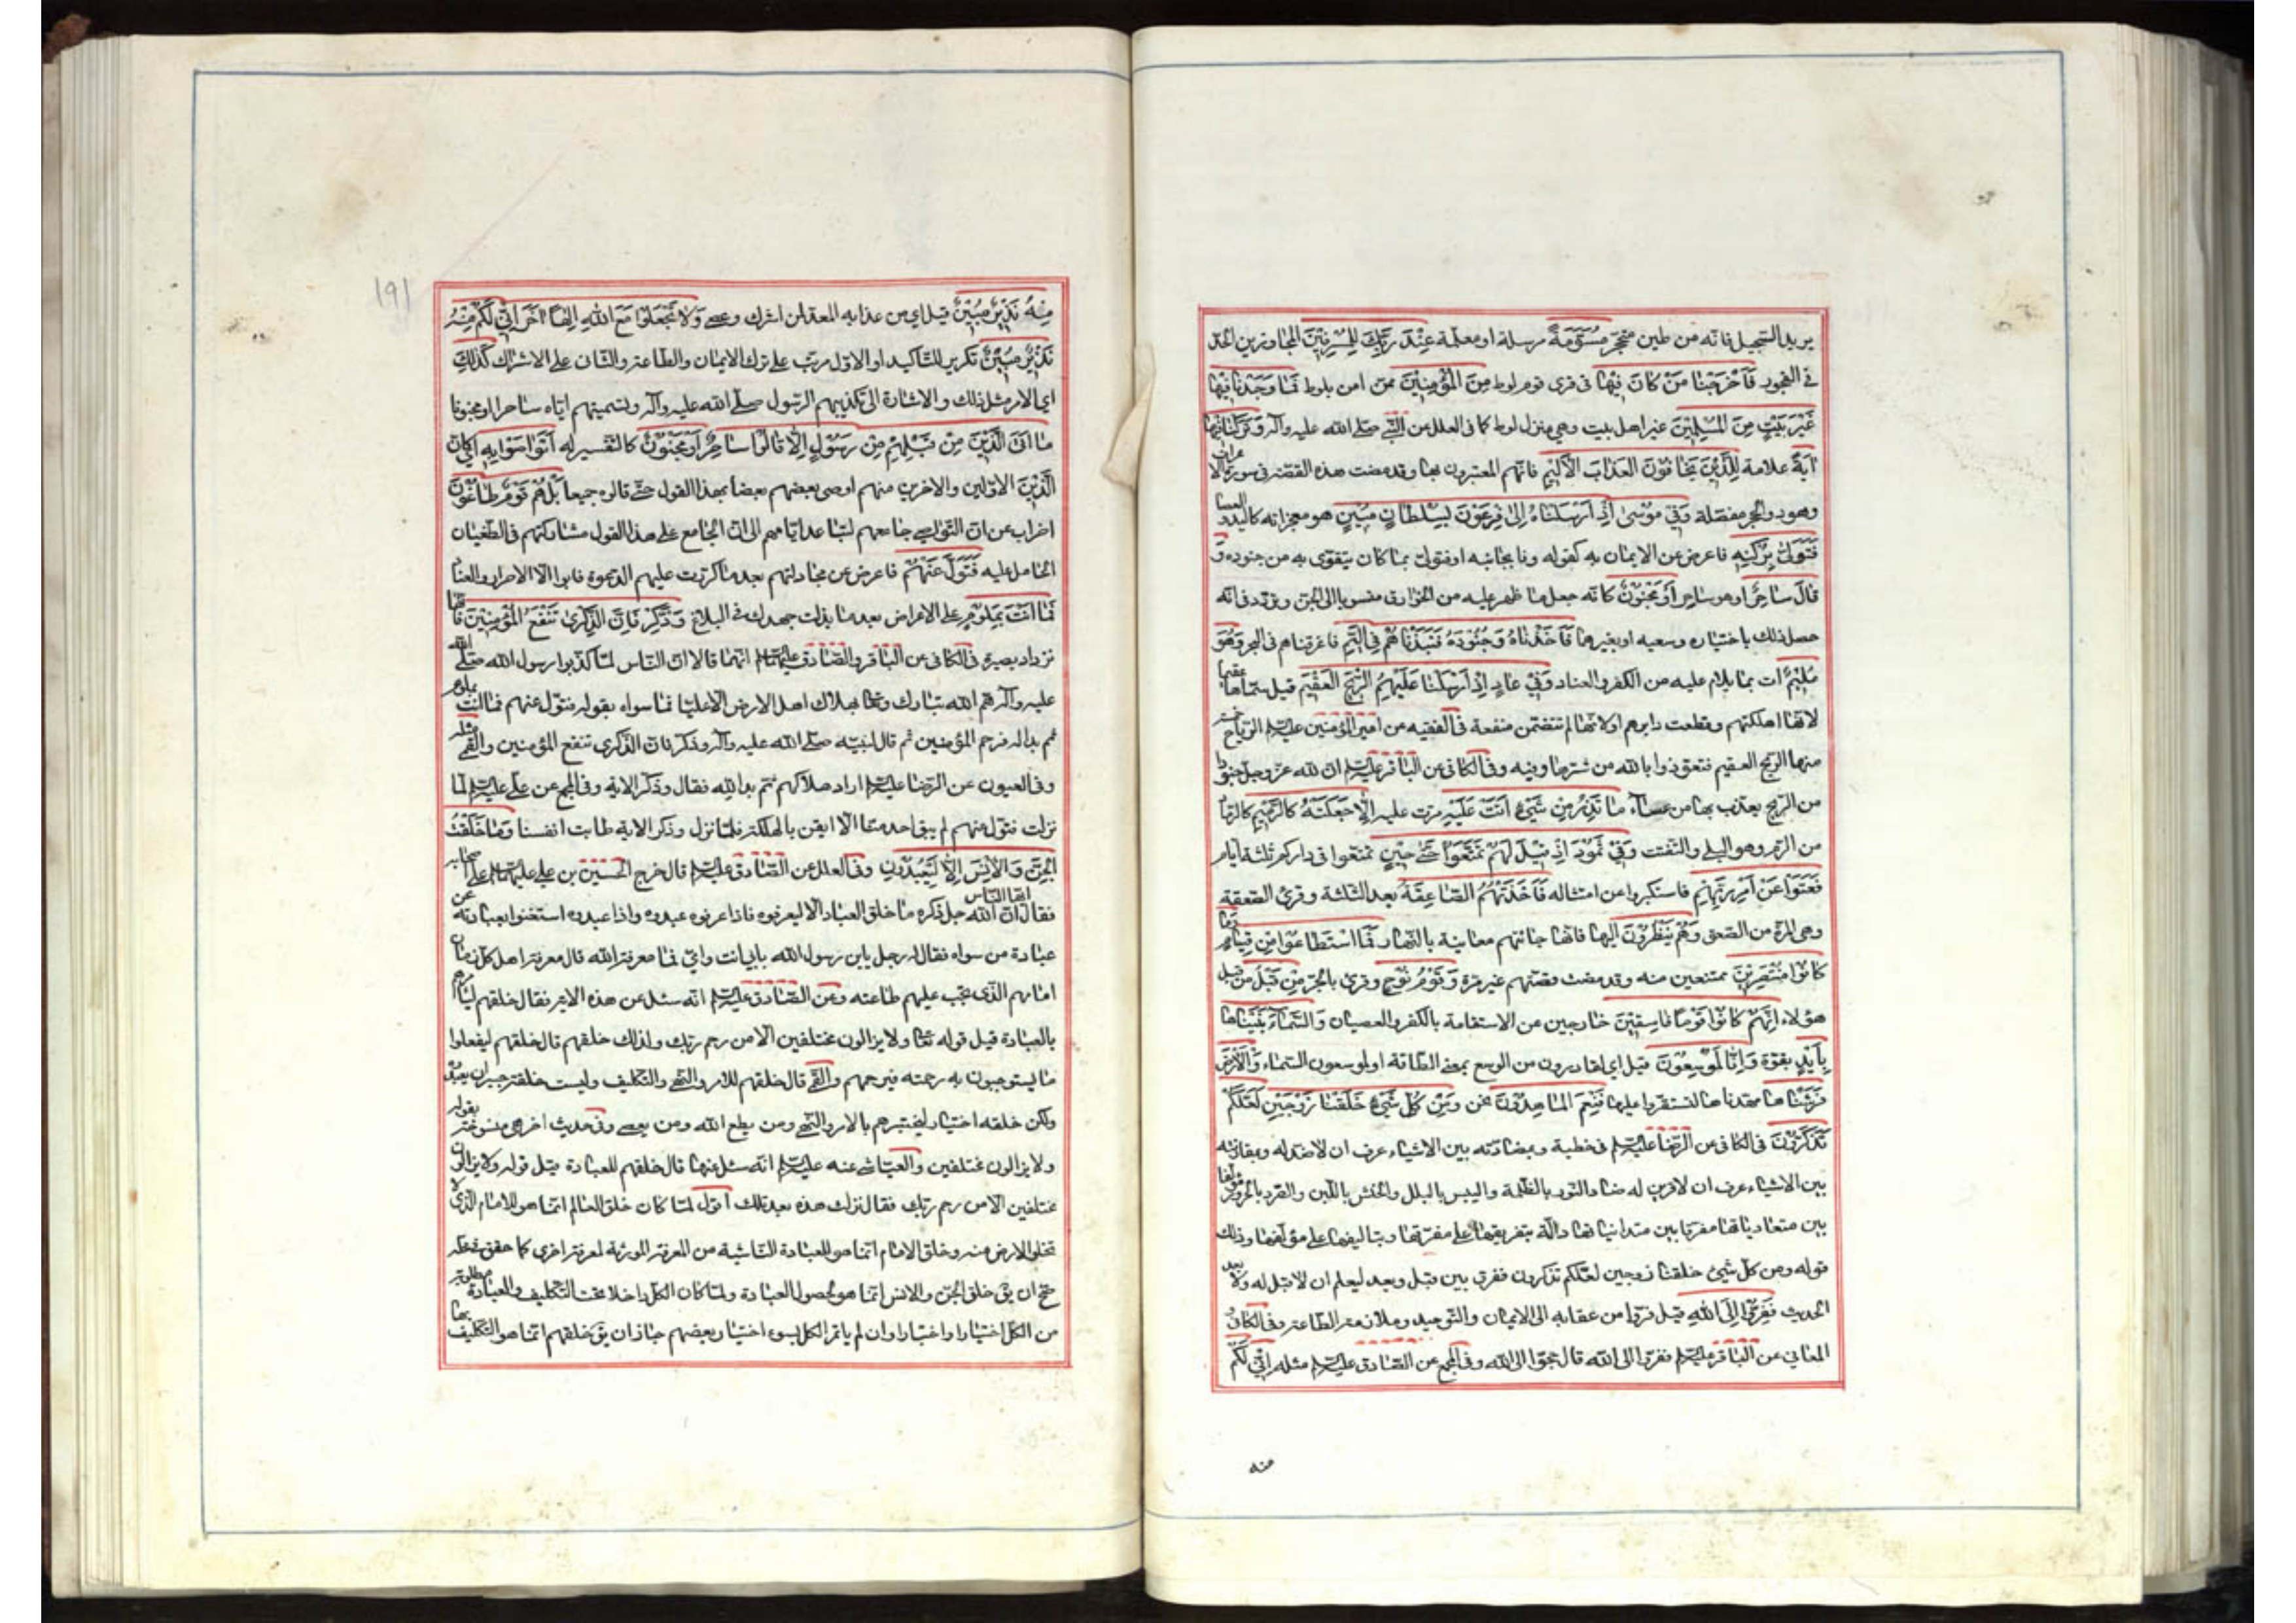 يريد السجيل فانه من طين متحجر مُسَوَّمَةً مرسلة او معلمة عِنْدَ رَبِّكَ لِلْمُسْرِفِينَ المجاوزين الحد
في الفجور فَأَخْرَجْنَا مَنْ كَانَ فِيهَا في قرى قوم لوط مِنَ الْمُؤْمِنِينَ ممن امن بلوط فَمَا وَجَدْنَا فِيهَا
غَيْرَ بَيْتٍ مِنَ الْمُسْلِمِينَ غير اهل بيت وهي منزل لوط كما في العلل عن النبي صلى الله عليه وآله وَتَرَكْنَا فِيهَا
آيَةً علامة لِلَّذِينَ يَخَافُونَ الْعَذَابَ الْأَلِيمَ فانهم المعتبرون بها وقد مضت هذه القصة في سورة الاعراف
وهود والحجر مفصلة وَفِي مُوسَى إِذْ أَرْسَلْنَاهُ إِلَى فِرْعَوْنَ بِسُلْطَانٍ مُبِينٍ هو معجزاته كاليد والعصا
فَتَوَلَّى بِرُكْنِهِ فاعرض عن الايمان به كقوله ونا بجانبه او فتولى بما كان يتقوى به من جنوده وَ
قَالَ سَاحِرٌ اي هو ساحر أَوْ مَجْنُونٌ كانه جعل ما ظهر عليه من الخوارق منسوبا الى الجن وتردد في انه
حصل ذلك باختياره وسعيه او بغيرهما فَأَخَذْنَاهُ وَجُنُودَهُ فَنَبَذْنَاهُمْ فِي الْيَمِّ فاغرقناهم في البحر وَهُوَ
مُلِيمٌ آت بما يلام عليه من الكفر والعناد وَفِي عَادٍ إِذْ أَرْسَلْنَا عَلَيْهِمُ الرِّيحَ الْعَقِيمَ قيل سماها عقيما
لانها اهلكتهم وقطعت دابرهم او لانها لم تتضمن منفعة في الفقيه عن امير المؤمنين عليه السلم الرياح خمسة
منها الريح العقيم فتعوذوا بالله من شرها وفيه وفي الكافي عن الباقر عليه السلم ان لله عز وجل جنودا
من الريح يعذب بها من عصاه مَا تَذَرُ مِنْ شَيْءٍ أَتَتْ عَلَيْهِ مرت عليه إِلَّا جَعَلَتْهُ كَالرَّمِيمِ كالرماد
من الرم وهو البلى والتفتت وَفِي ثَمُودَ إِذْ قِيلَ لَهُمْ تَمَتَّعُوا حَتَّى حِينٍ تمتعوا في داركم ثلثة ايام
فَعَتَوْا عَنْ أَمْرِ رَبِّهِمْ فاستكبروا عن امتثاله فَأَخَذَتْهُمُ الصَّاعِقَةُ بعد الثلثة وقرئ الصعقة
وهي المرة من الصعق وَهُمْ يَنْظُرُونَ اليها فانها جائتهم معاينة بالنهار فَمَا اسْتَطَاعُوا مِنْ قِيَامٍ وَمَا
كَانُوا مُنْتَصِرِينَ ممتنعين منه وقد مضت قصتهم غير مرة وَقَوْمَ نُوحٍ وقرئ بالجر مِنْ قَبْلُ من قبل
هؤلاء إِنَّهُمْ كَانُوا قَوْمًا فَاسِقِينَ خارجين عن الاستقامة بالكفر والعصيان وَالسَّمَاءَ بَنَيْنَاهَا
بِأَيْدٍ بقوة وَإِنَّا لَمُوسِعُونَ قيل اي لقادرون من الوسع بمعنى الطاقة او لموسعون السماء وَالْأَرْضَ
فَرَشْنَاهَا مهدناها لتستقروا عليها فَنِعْمَ الْمَاهِدُونَ نحن وَمِنْ كُلِّ شَيْءٍ خَلَقْنَا زَوْجَيْنِ لَعَلَّكُمْ
تَذَكَّرُونَ في الكافي عن الرضا عليه السلم في خطبة وبمضادته بين الاشياء عرف ان لا ضد له وبمقارنته
بين الاشياء عرف ان لا قرين له ضاد النور بالظلمة واليبس بالبلل والخشن باللين والصرد بالحرور مؤلفا
بين متعادياتها مفرقا بين متدانياتها دالة بتفريقها على مفرقها وبتاليفها على مؤلفها وذلك
قوله ومن كل شيئ خلقنا زوجين لعلكم تذكرون ففرق بين قبل وبعد ليعلم ان لا قبل له ولا بعد
الحديث فَفِرُّوا إِلَى اللَّهِ قيل فروا من عقابه الى الايمان والتوحيد وملازمة الطاعة وفي الكافي و
المعاني عن الباقر عليه السلم ففروا الى الله قال حجوا الى الله وفي المجمع عن الصادق عليه السلم مثله إِنِّي لَكُمْ
منه
191
مِنْهُ نَذِيرٌ مُبِينٌ قيل اي من عذابه المعد لمن اشرك وعصى وَلَا تَجْعَلُوا مَعَ اللَّهِ إِلَهًا آخَرَ إِنِّي لَكُمْ مِنْهُ
نَذِيرٌ مُبِينٌ تكرير للتأكيد او الاول مرتب على ترك الايمان والطاعة والثاني على الاشراك كَذَلِكَ
اي الامر مثل ذلك والاشارة الى تكذيبهم الرسول صلى الله عليه وآله وتسميتهم اياه ساحرا او مجنونا
مَا أَتَى الَّذِينَ مِنْ قَبْلِهِمْ مِنْ رَسُولٍ إِلَّا قَالُوا سَاحِرٌ أَوْ مَجْنُونٌ كالتفسير له أَتَوَاصَوْا بِهِ اي كان
الَّذِينَ الاولين والاخرين منهم اوصى بعضهم بعضا بهذا القول حتى قالوه جميعا بَلْ هُمْ قَوْمٌ طَاغُونَ
اضراب عن ان التواصي جامعهم لتباعد ايامهم الى ان الجامع على هذا القول مشاركتهم في الطغيان
الحامل عليه فَتَوَلَّ عَنْهُمْ فاعرض عن مجادلتهم بعد ما كررت عليهم الدعوة فابوا الا الاصرار والعناد
فَمَا أَنْتَ بِمَلُومٍ على الاعراض بعد ما بذلت جهدك في البلاغ وَذَكِّرْ فَإِنَّ الذِّكْرَى تَنْفَعُ الْمُؤْمِنِينَ فانها
تزداد بصيرة في الكافي عن الباقر والصادق عليهما السلم انهما قالا ان الناس لما كذبوا رسول الله صلى الله
عليه وآله هم الله تبارك وتعالى بهلاك اهل الارض الا عليا فما سواه بقوله فتول عنهم فما انت بملوم
ثم بدا له فرحم المؤمنين ثم قال لنبيه صلى الله عليه وآله وذكر فان الذكرى تنفع المؤمنين والقمي مثله
وفي العيون عن الرضا عليه السلم اراد هلاكهم ثم بدا لله فقال وذكر الاية وفي المجمع عن علي عليه السلم لما
نزلت فتول عنهم لم يبق احد منا الا ايقن بالهلكة فلما نزل وذكر الاية طابت انفسنا وَمَا خَلَقْتُ
الْجِنَّ وَالْإِنْسَ إِلَّا لِيَعْبُدُونِ وفي العلل عن الصادق عليه السلم قال خرج الحسين بن علي عليهما السلم على اصحابه
فقال ايها الناس ان الله جل ذكره ما خلق العباد الا ليعرفوه فاذا عرفوه عبدوه واذا عبدوه استغنوا بعبادته عن
عبادة من سواه فقال له رجل يابن رسول الله بابي انت وامي فما معرفة الله قال معرفة اهل كل زمان
امامهم الذي يجب عليهم طاعته وعن الصادق عليه السلم انه سئل عن هذه الاية فقال خلقهم ليأمرهم
بالعبادة قيل قوله تعالى ولا يزالون مختلفين الا من رحم ربك ولذلك خلقهم قال خلقهم ليفعلوا
ما يستوجبون به رحمته فيرحمهم والقمي قال خلقهم للامر والنهي والتكليف وليست خلقة جبر ان يعبدوه
ولكن خلقه اختيار ليختبرهم بالامر والنهي ومن يطع الله ومن يعصي وفي حديث اخر هي منسوخة بقوله
ولا يزالون مختلفين والعياشي عنه عليه السلم انه سئل عنها قال خلقهم للعبادة قيل قوله ولا يزالون
مختلفين الا من رحم ربك فقال نزلت هذه بعد تلك اقول لما كان خلق العالم انما هو للامام الذي لا
تخلو الارض منه وخلق الامام انما هو للعبادة الناشية من المعرفة المورثة لمعرفة اخرى كما حقق في محله
صح ان يق خلق الجن والانس انما هو لحصول العبادة ولما كان الكل داخلا تحت التكليف والعبادة مطلوبة
من الكل اختيارا واختبارا وان لم يأتمر الكل لسوء اختيار بعضهم جاز ان يق خلقهم انما هو للتكليف بها